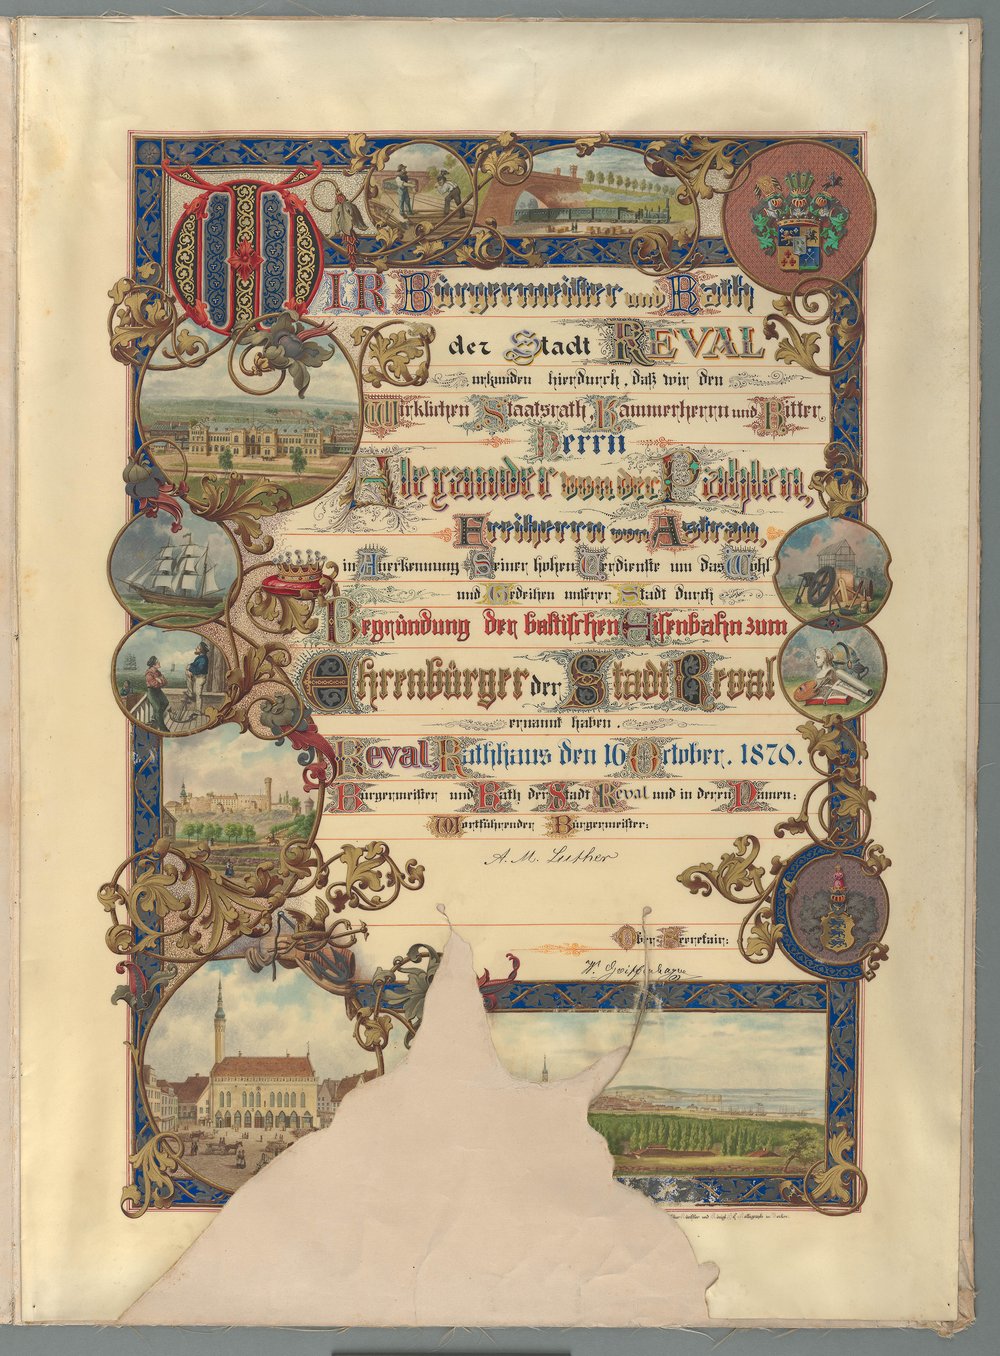 WIR Bürgermeister und Rath
der Stadt REVAL
urkunden hierdurch, daß wir den
Wirklichen Staatsrath, Kammerherrn und Ritter,
Herrn
Alexander von der Pahlen,
Freiherrn von Astrau,
in Anerkennung Seiner hohen Verdienste um das Wohl
und Gedeihen unserer Stadt durch
Begründung der baltischen Eisenbahn zum
Ehrenbürger der Stadt Reval
ernannt haben.
Reval, Rathhaus den 16 October. 1870.
Bürgermeister und Rath der Stadt Reval und in deren Namen:
Wortführender Bürgermeister:
A. M. Luther
Ober-Secretair:
W. Greiffenhagen